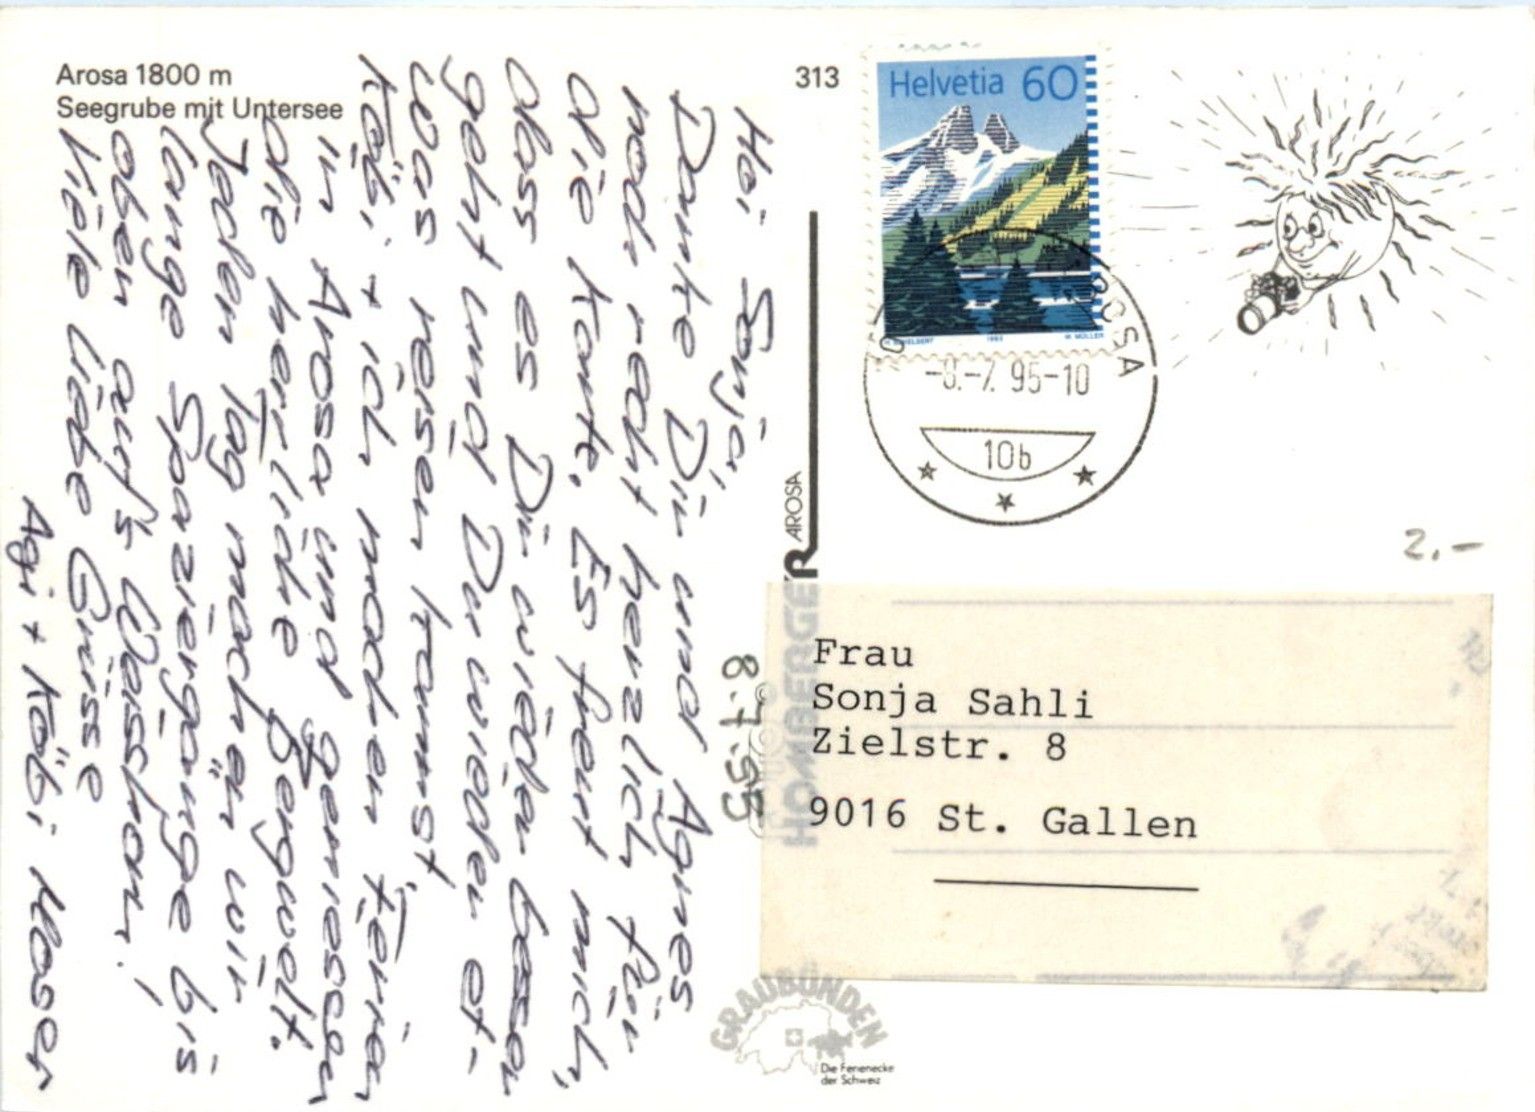 Arosa 1800 m
Seegrube mit Untersee
313
Hoi Sonja,
Danke Dir und Agnes
noch recht herzlich für
die Karte. Es freut mich,
dass es Dir wieder besser
geht und Du wieder et-
was reisen kannst,
Köbi + ich machen Ferien
in Arosa und geniessen
die herrliche Bergwelt.
Jeden Tag machen wir
lange Spaziergänge bis
oben auf's Weisshorn!
Viele liebe Grüsse
Agi + Köbi Moser
8.7.95
AROSA
HOMBERGER
Helvetia 60
1993
AROSA
-8.-7.95-10
10b
2.-
Frau
Sonja Sahli
Zielstr. 8
9016 St. Gallen
GRAUBÜNDEN
Die Ferienecke
der Schweiz